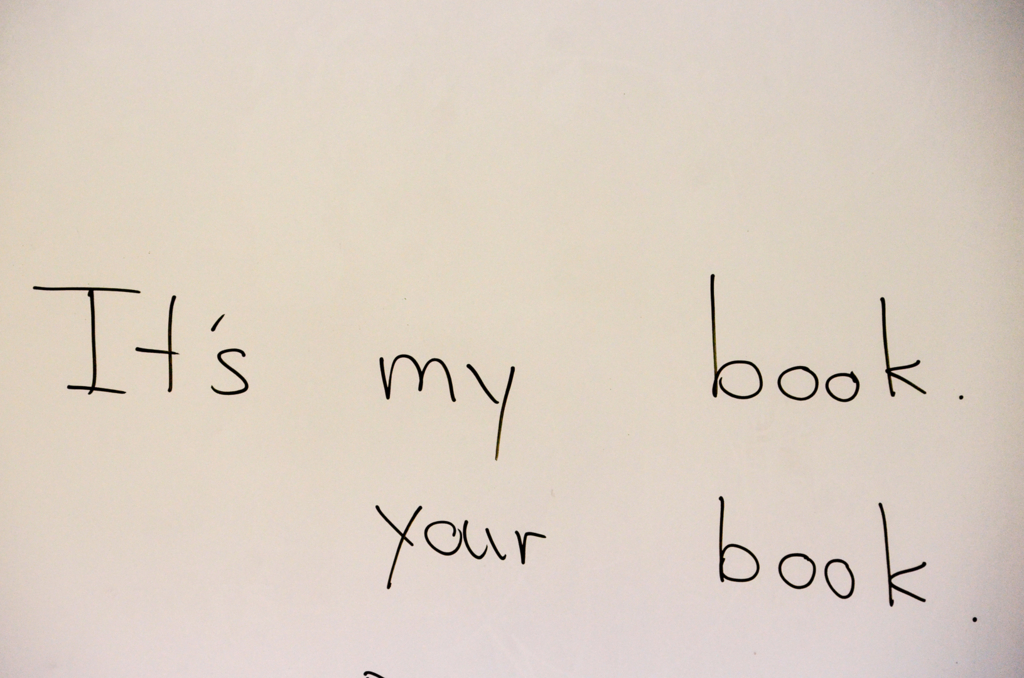 It's my book.
your book.